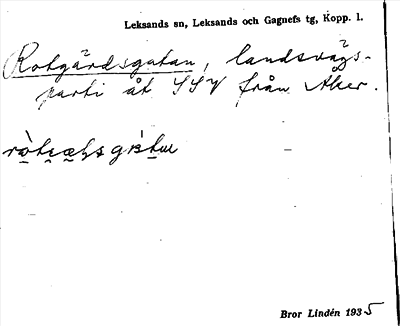 Leksands sn, Leksands och Gagnefs tg, Kopp. l.
Rotgårdsgatan, landsvägs-
parti åt SSV från Aker.
Bror Lindén 1935